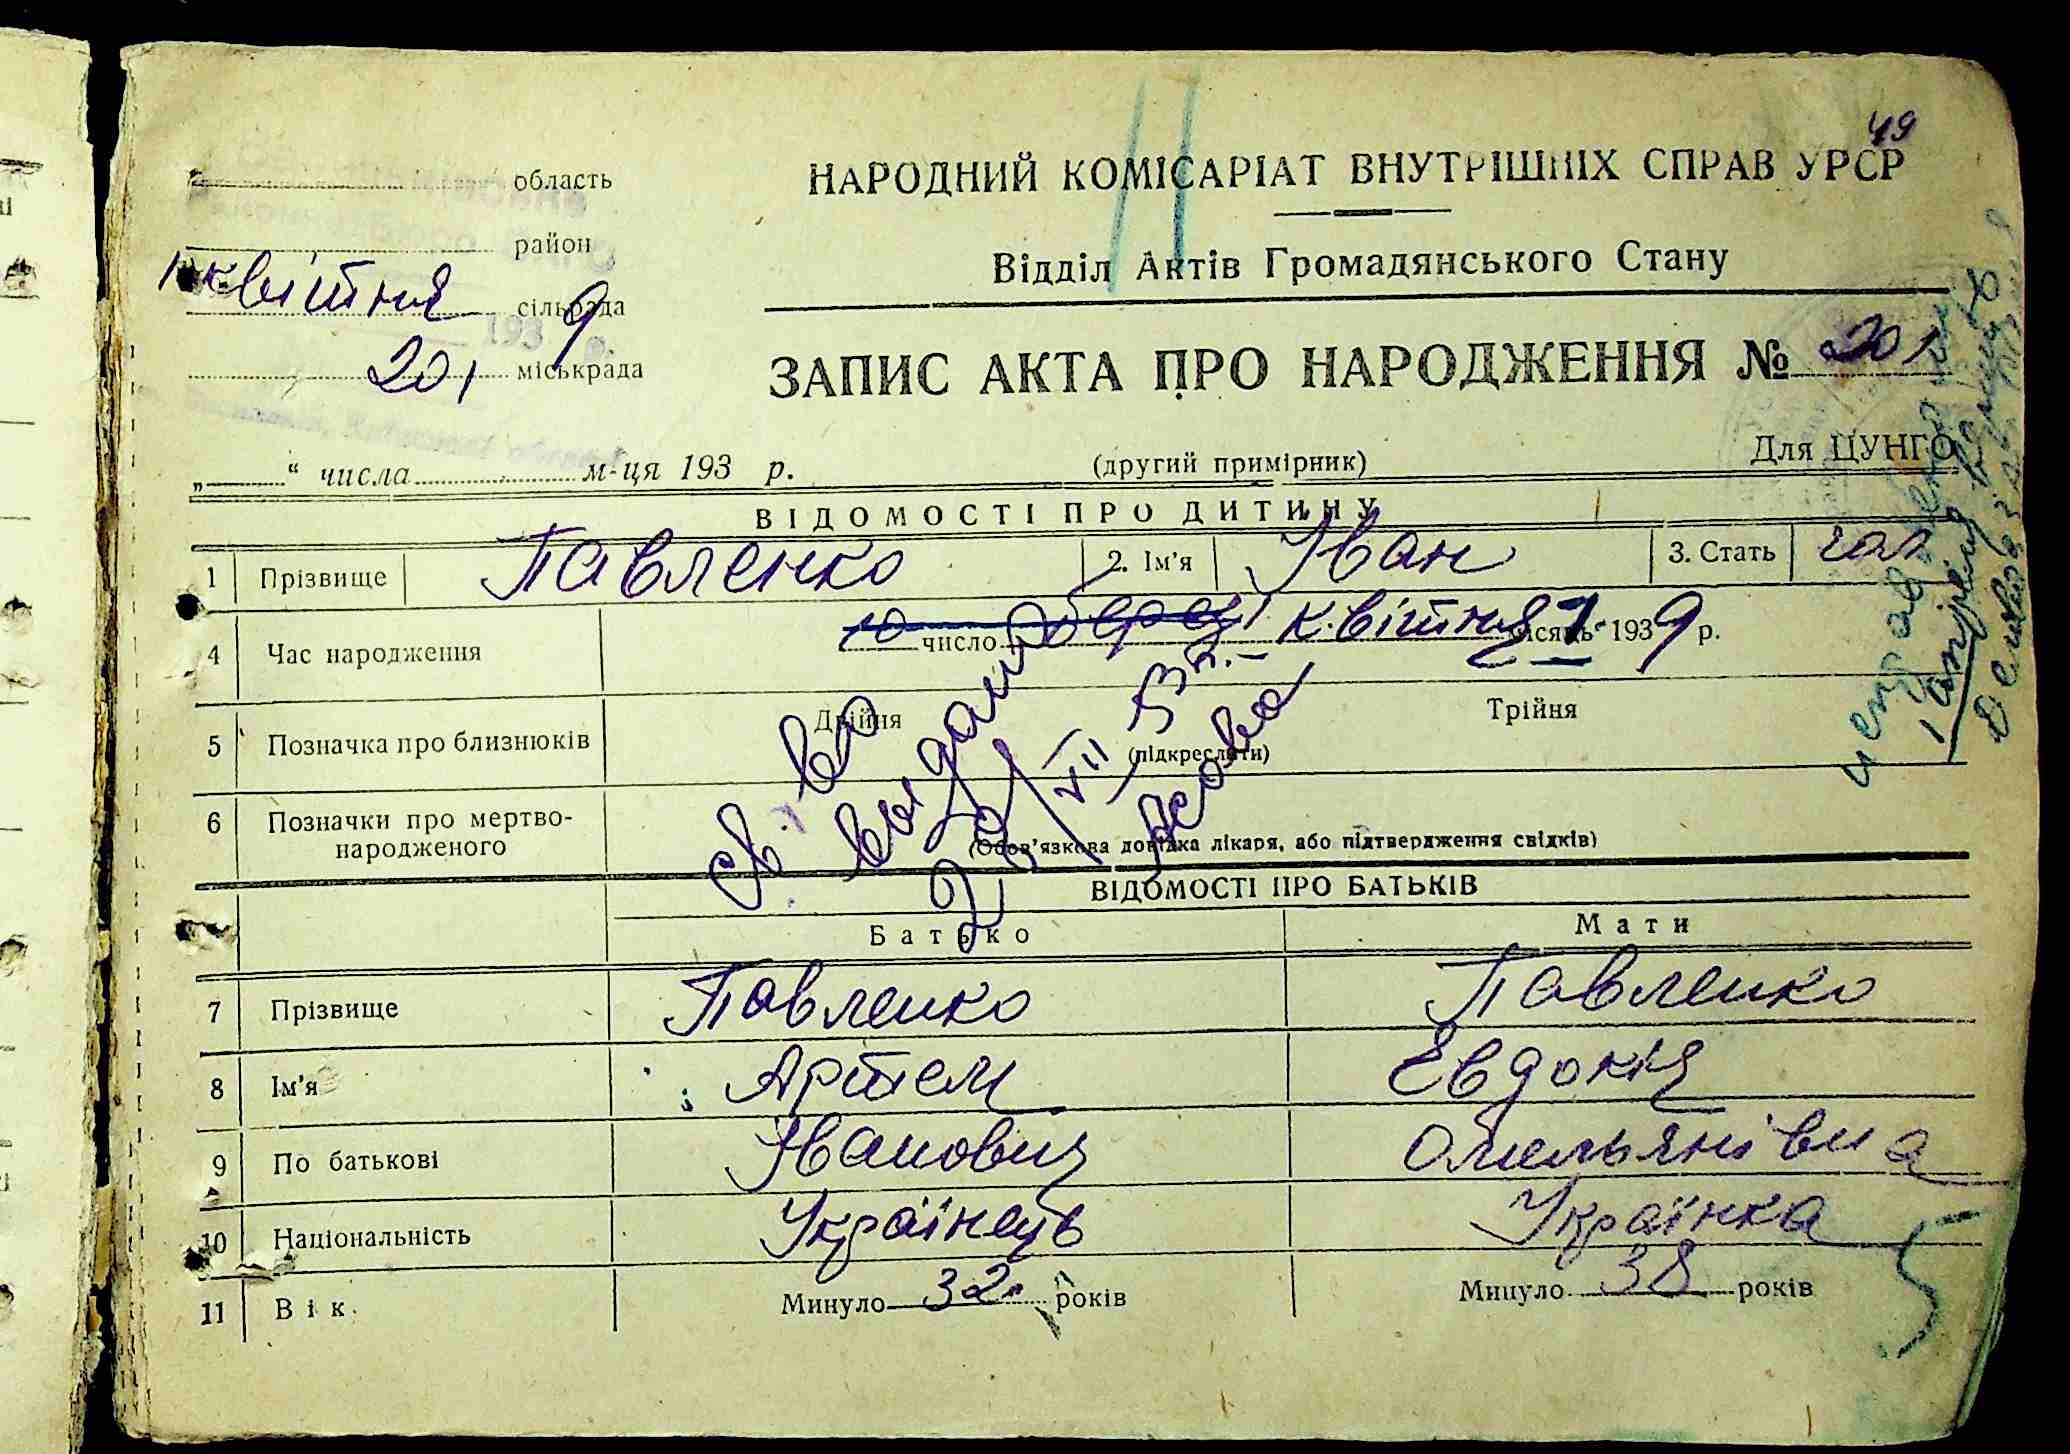 49
область
НАРОДНИЙ КОМІСАРІАТ ВНУТРІШНІХ СПРАВ УРСР
район
Відділ Актів Громадянського Стану
1 квітня
сільрада
193 9 р.
201 міськрада
ЗАПИС АКТА ПРО НАРОДЖЕННЯ № 201
„ “ числа м-ця 193 р.
(другий примірник)
Для ЦУНГО
ВІДОМОСТІ ПРО ДИТИНУ
1 Прізвище Павленко 2. Ім'я Іван 3. Стать чол
4 Час народження 10 число березня квітня 1 місяць 1939 р.
5 Позначка про близнюків Двійня Трійня
(підкреслити)
6 Позначки про мертво-
народженого
(Обов'язкова довідка лікаря, або підтвердження свідків)
св. во
выдано
21/VII 53 г.
ВІДОМОСТІ ПРО БАТЬКІВ
Батько Мати
7 Прізвище Павленко Павленко
8 Ім'я Артем Евдокія
9 По батькові Іванович Омельянівна
10 Національність Українець Українка
11 Вік Минуло 32 років Минуло 38 років
исправлено
1 апреля
5